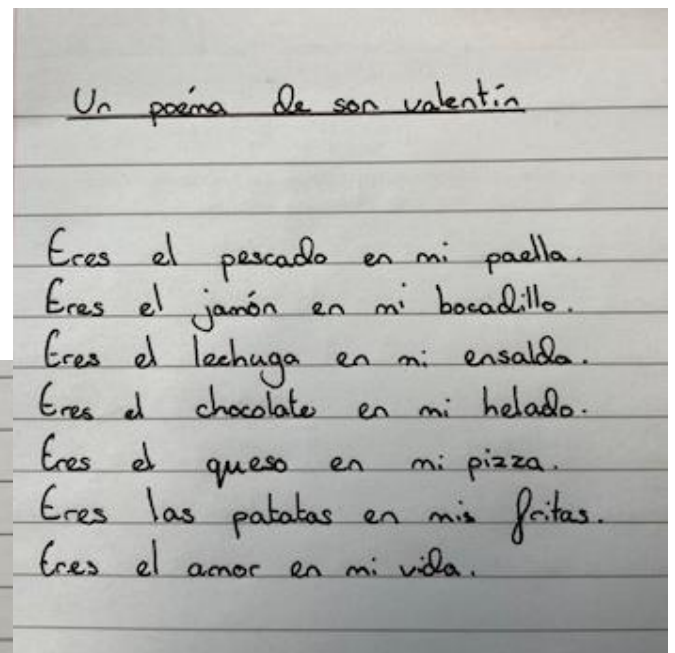 Un poéma de san valentín
Eres el pescado en mi paella.
Eres el jamón en mi bocadillo.
Eres el lechuga en mi ensalda.
Eres el chocolate en mi helado.
Eres el queso en mi pizza.
Eres las patatas en mis fritas.
Eres el amor en mi vida.